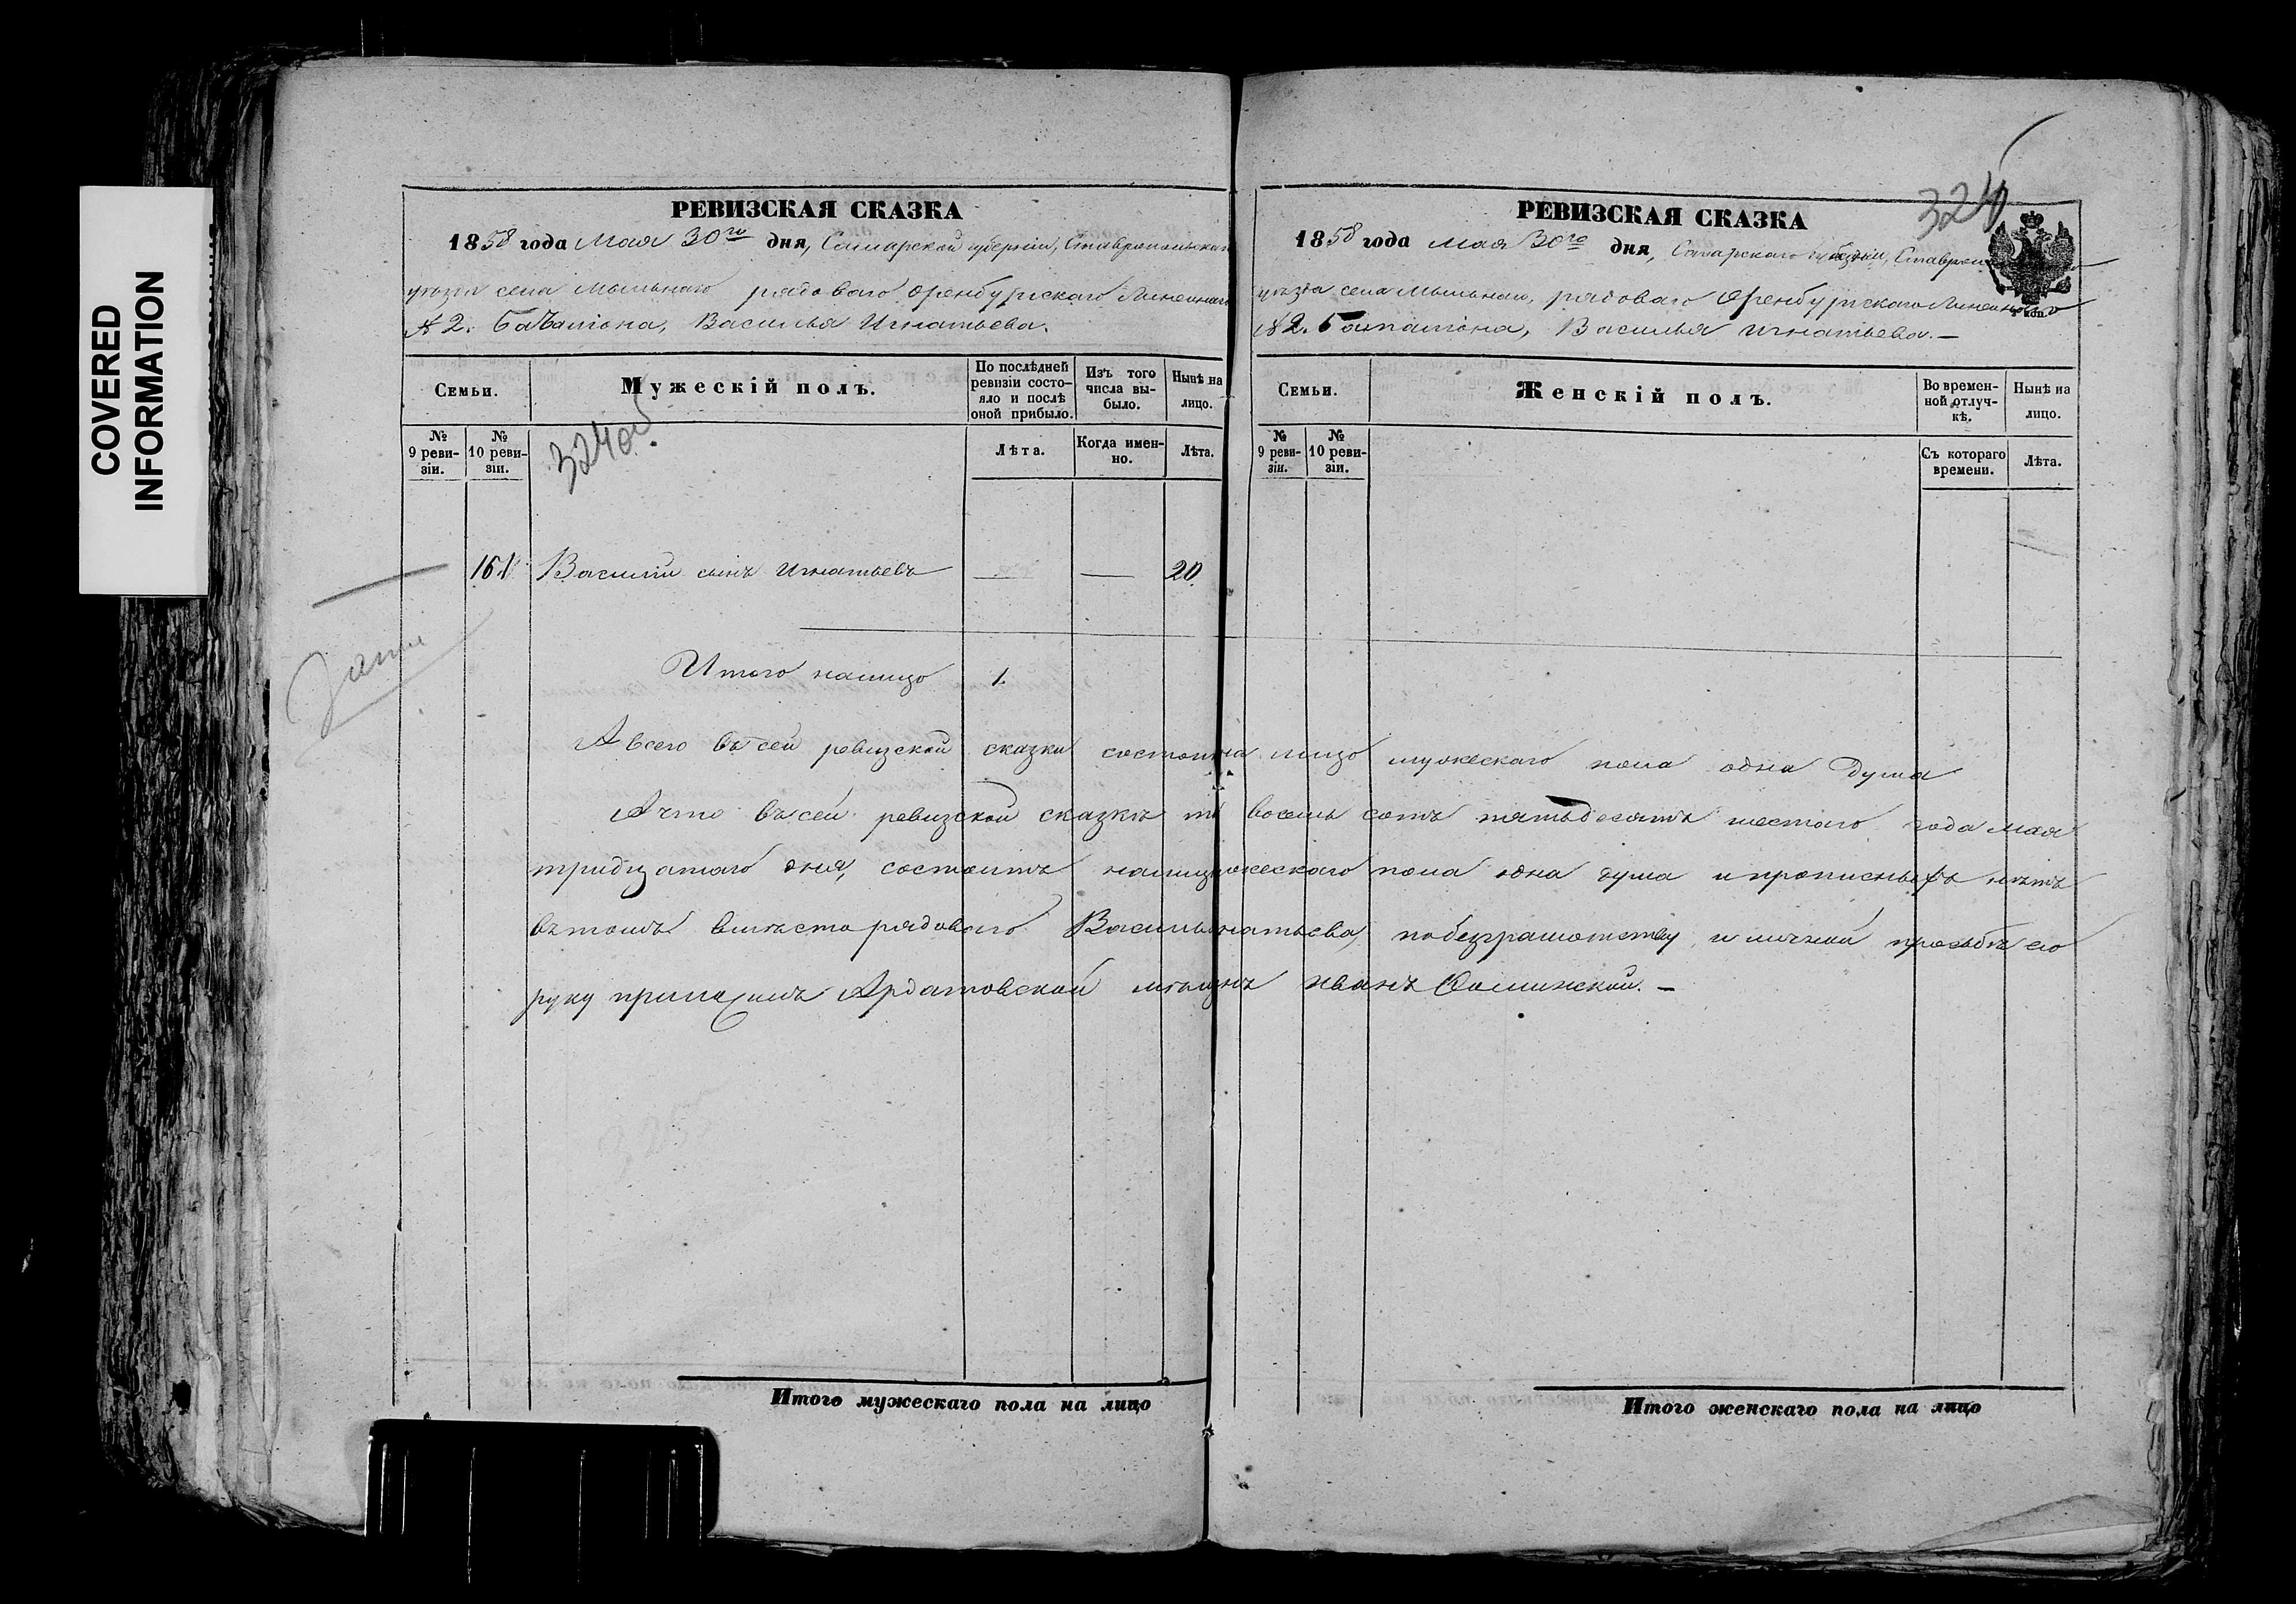 COVERED
INFORMATION
РЕВИЗСКАЯ СКАЗКА
1858 года Мая 30го дня, Самарской губерніи, Ставропольскаго
уезда села Мыльнаго рядоваго Оренбургскаго Линейнаго
№ 2. Баталіона, Василья Игнатьева.
Семьи.
Мужескій полъ.
По послѣдней ревизіи состояло и послѣ оной прибыло.
Изъ того числа выбыло.
Нынѣ на лицо.
№ 9 ревизіи.
№ 10 ревизіи.
324об.
Лѣта.
Когда именно.
Лѣта.
161
Василій сынъ Игнатьевъ
—
—
20.
Итого налицо 1.
РЕВИЗСКАЯ СКАЗКА
324
1858 года Мая 30го дня, Самарскаго губерніи,
уезда села рядоваго Оренбургскаго Линейнаго
№ 2. Василья Игнатьева. —
Семьи.
Женскій полъ.
Во временной отлучкѣ.
Нынѣ на лицо.
№ 9 ревизіи.
№ 10 ревизіи.
Съ котораго времени.
Лѣта.
А всего въ сей ревизской сказки состоит на лицо мужескаго пола одна душа
А что въ сей ревизской сказкѣ восемь сотъ пятьдесятъ года мая
тридцатаго дня, состоитъ пола одна душа и прописныхъ нѣтъ
въ томъ вместо рядоваго по безграмотству и личной прозьбѣ его
руку приложилъ Ардатовской Иванъ —
Итого мужескаго пола на лицо
Итого женскаго пола на лицо